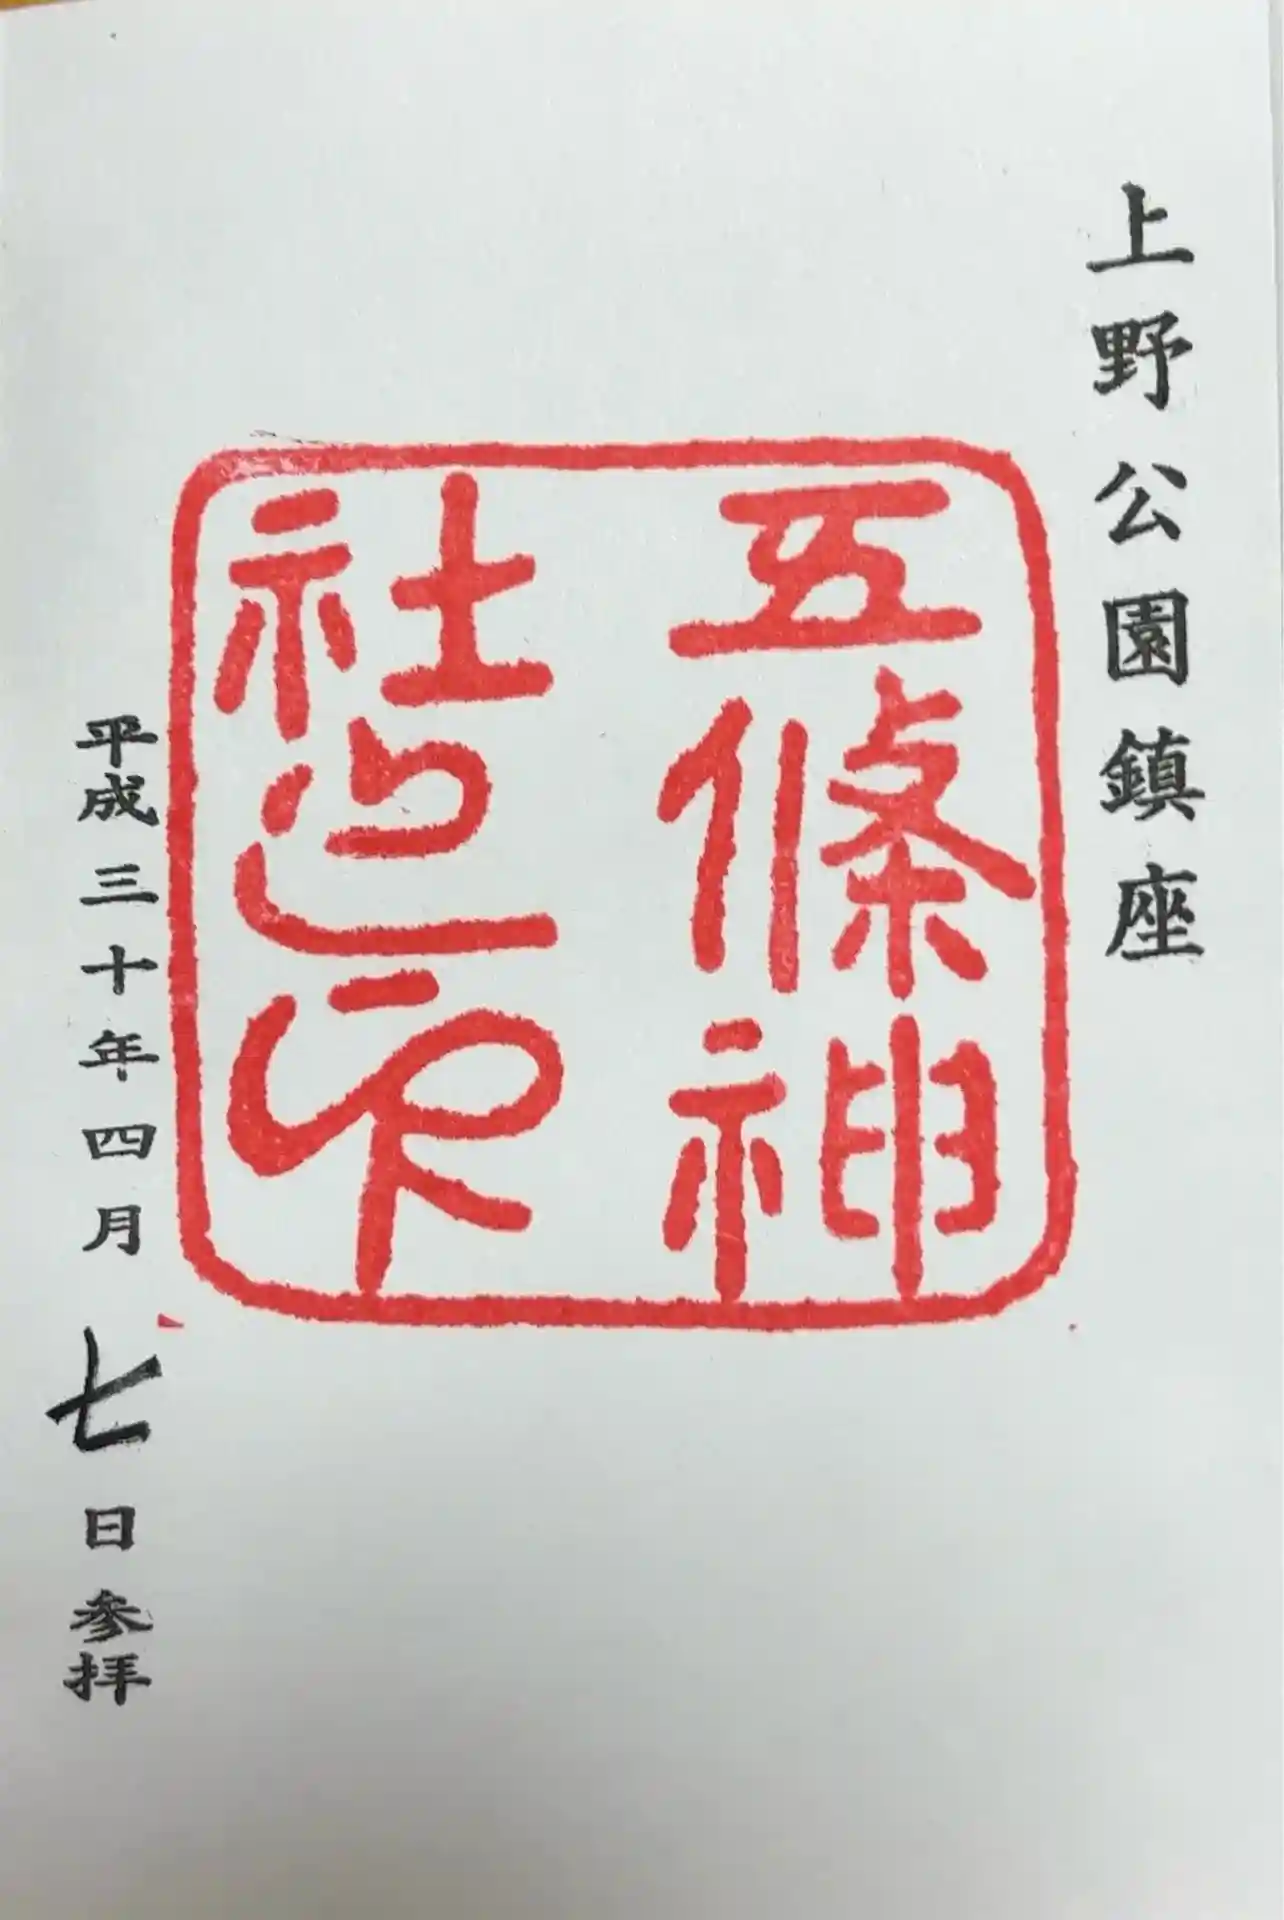 上野公園鎮座
五條神
社之印
平成三十年四月七日参拝